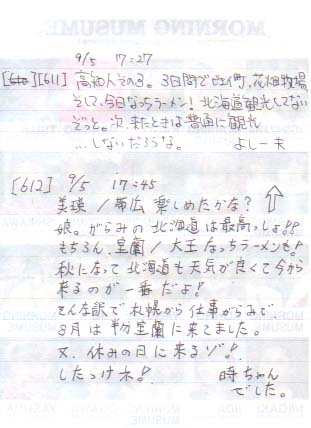 MORNING MUSUME
9/5 17:27
[610][611] 高知人その3。3日間で 町、花畑牧場、
そして、今日なっちラーメン！北海道観光してない
ぞっと。次、来たときは普通に観光
…しないだろうな。 よしー夫
[612] 9/5 17:45
美瑛／帯広 楽しめたかな？
娘。がらみの北海道は最高っしょ!!
もちろん、室蘭／大王 なっちラーメンも!
秋になって北海道も天気が良くて今から
来るのが一番だよ!
そんな訳で札幌から仕事がらみで
8月は 室蘭に来てました。
又、休みの日に来るゾ!
したっけネ! 時ちゃん
でした。